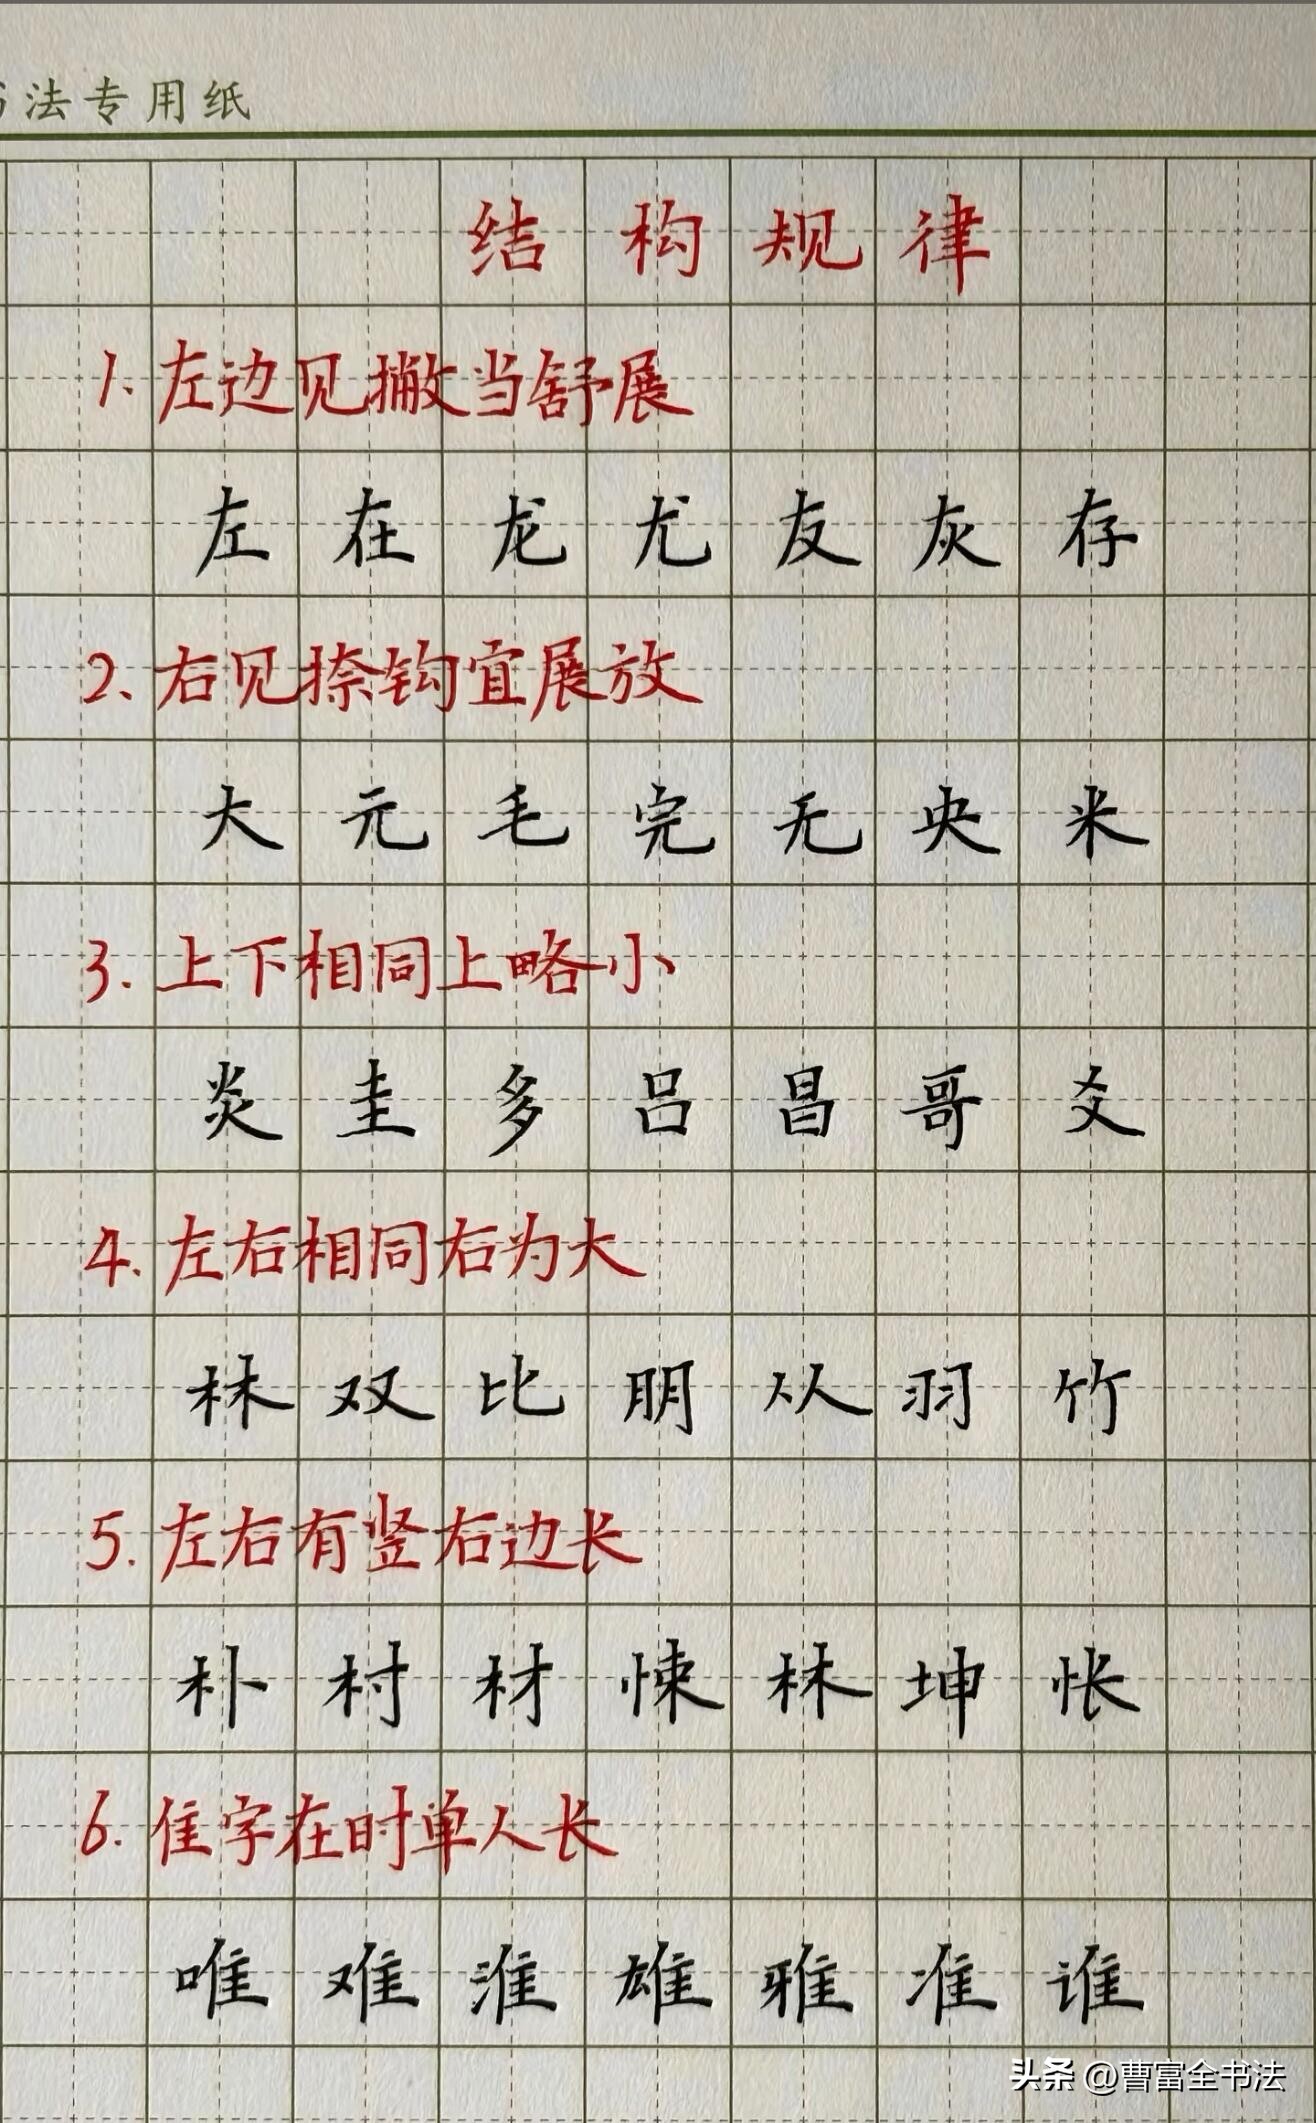 法专用纸
结构规律
1.左边见撇当舒展
左在龙尤友灰存
2.右见捺钩宜展放
大元毛完无央米
3.上下相同上略小
炎圭多吕昌哥爻
4.左右相同右为大
林双比朋从羽竹
5.左右有竖右边长
朴村材悚林坤怅
6.隹字在时单人长
唯难淮雄雅准谁
头条 @曹富全书法